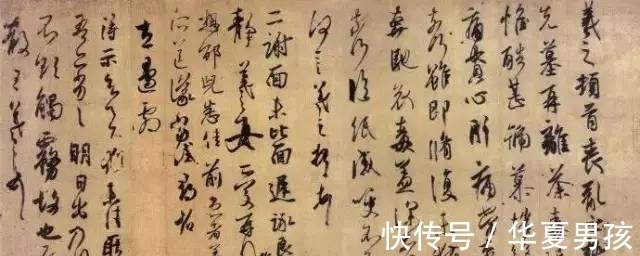 羲之頓首喪亂
先墓再離荼毒
惟酷甚號慕摧
痛貫心肝痛當
奈何雖即脩復未
奔馳哀毒益深
奈何臨紙感哽不
何言羲之頓首
二謝面未比面遲詠良
靜羲之女愛再
想邵兒悉佳前患者
左邊劇
得示知足下猶未佳耿
吾亦劣劣明日出乃
不欲觸霧故也
散王羲之頓
快传号 / 华夏男孩